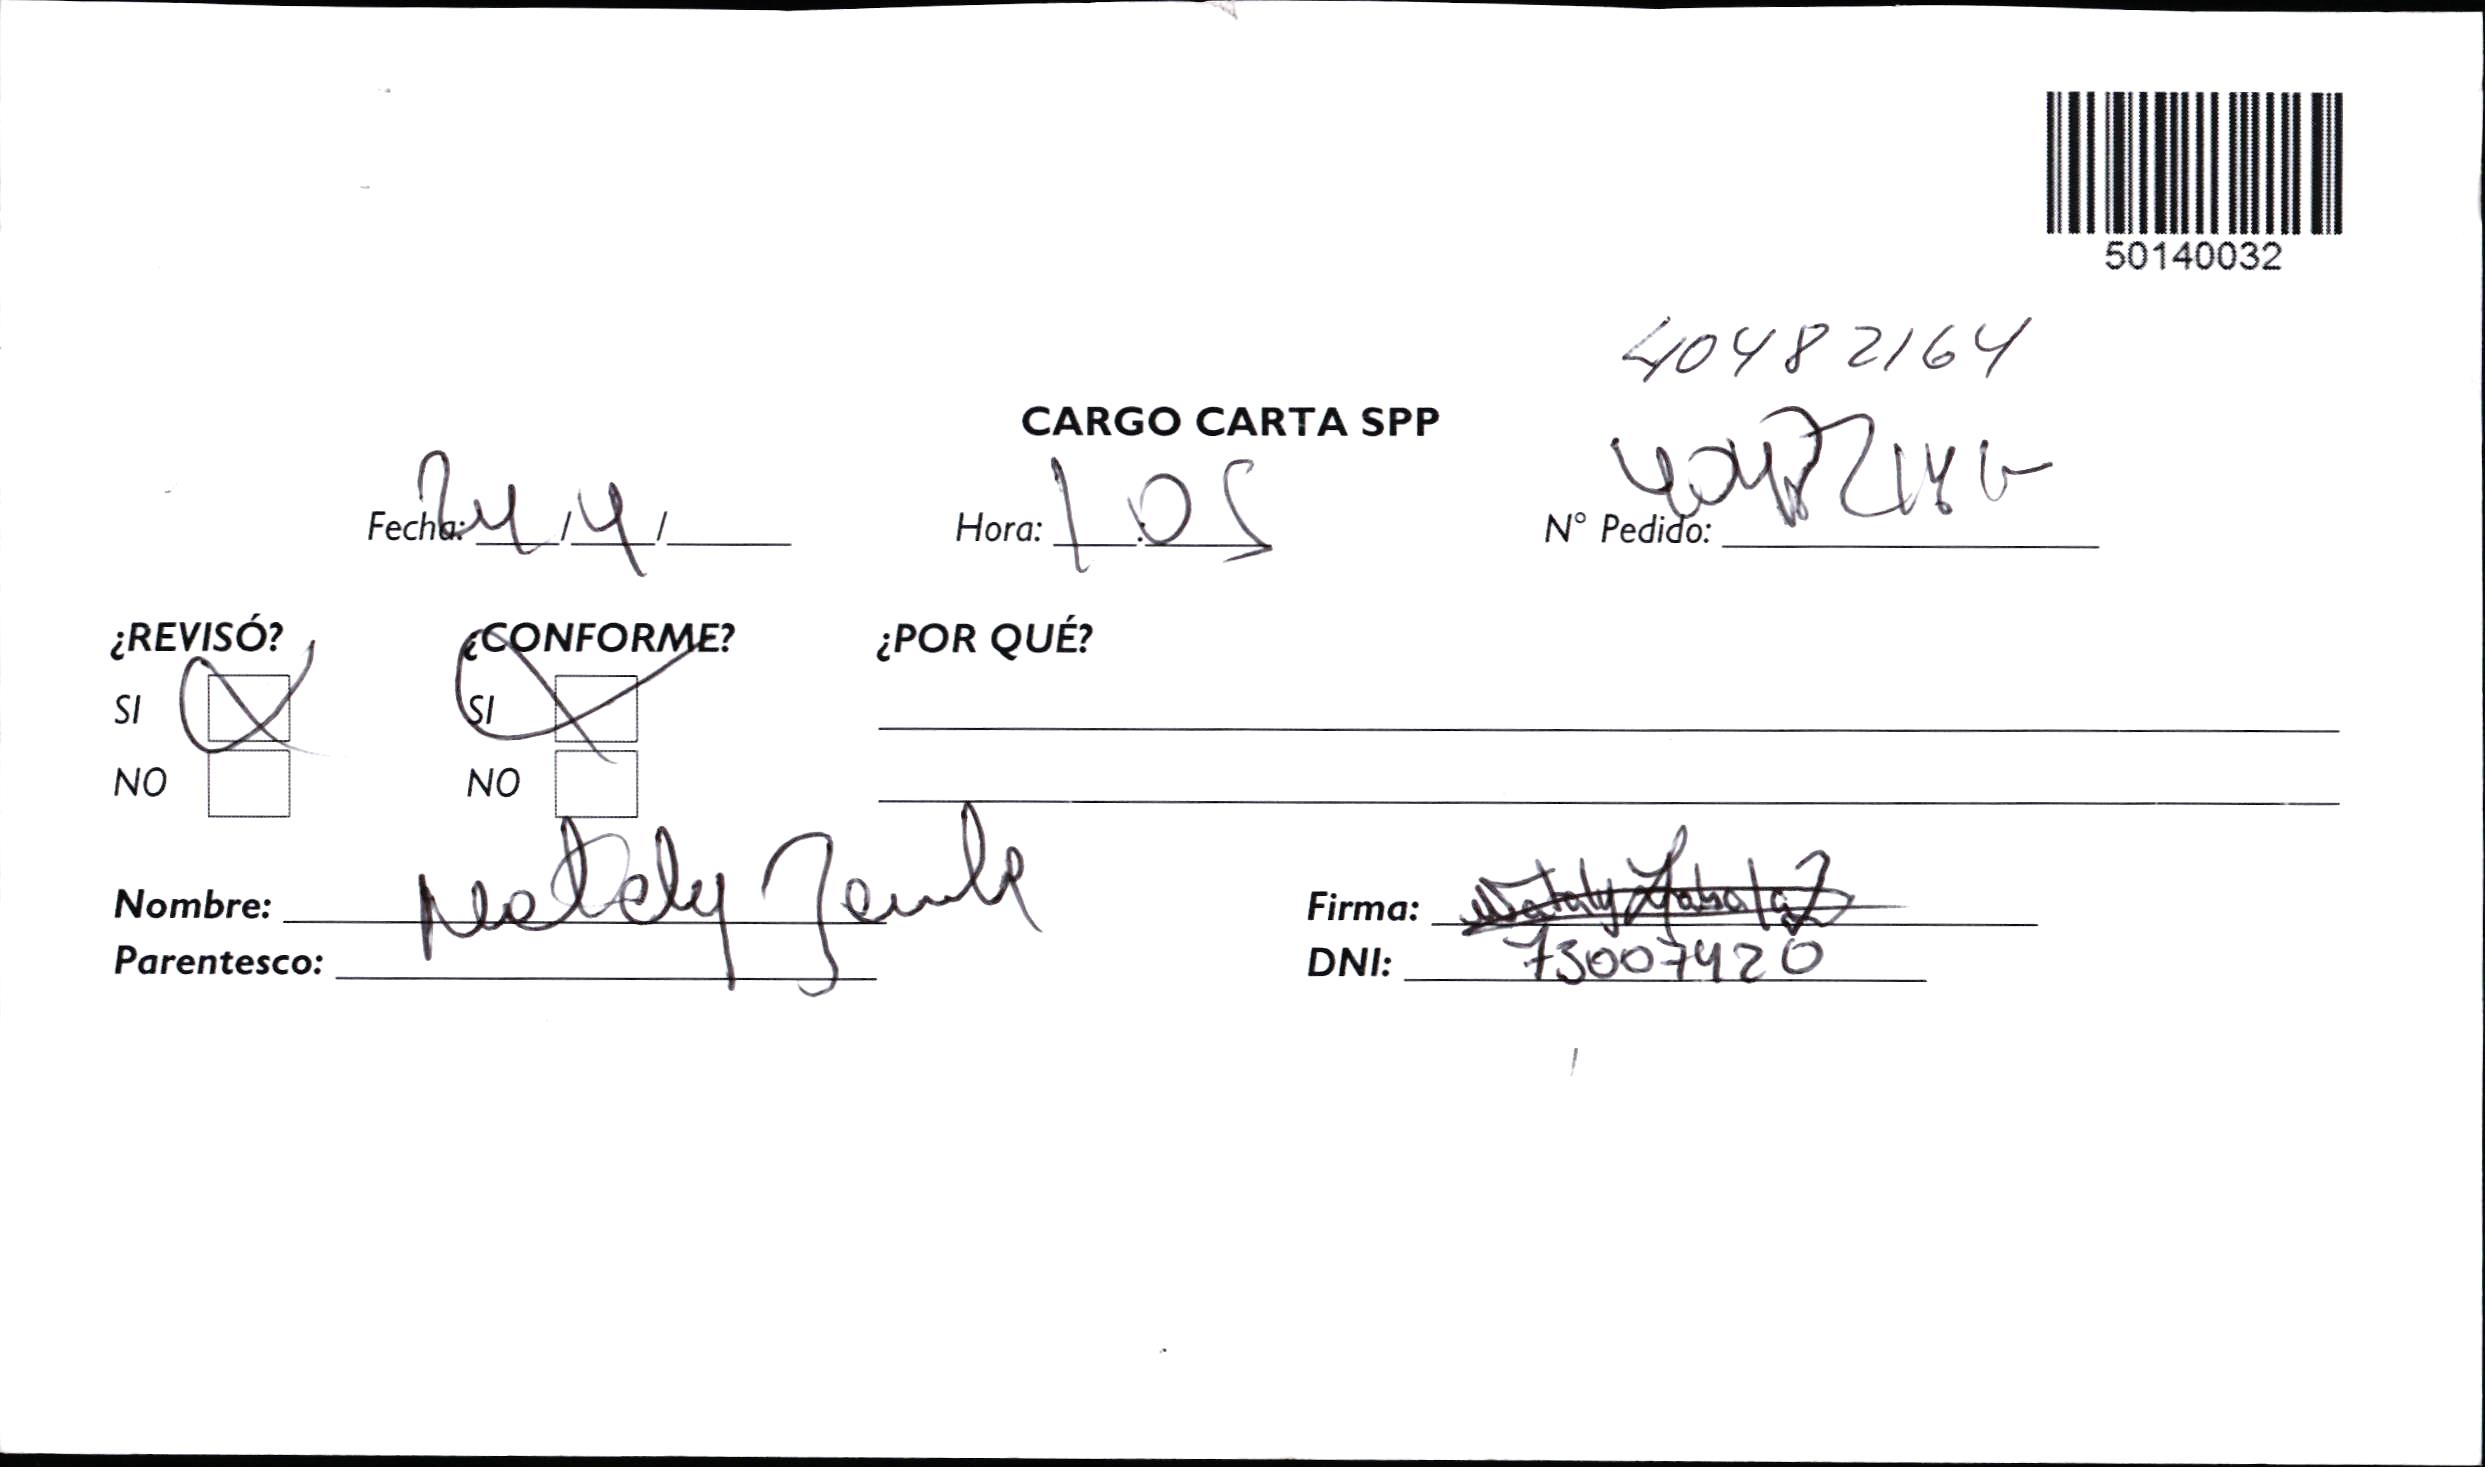 50140032
40482164
CARGO CARTA SPP
Fecha: 24/4/ Hora: 1:05 N° Pedido:
¿REVISÓ? ¿CONFORME? ¿POR QUÉ?
SI SI
NO NO
Nombre: Nataly Firma: Nataly
Parentesco: DNI: 73007420